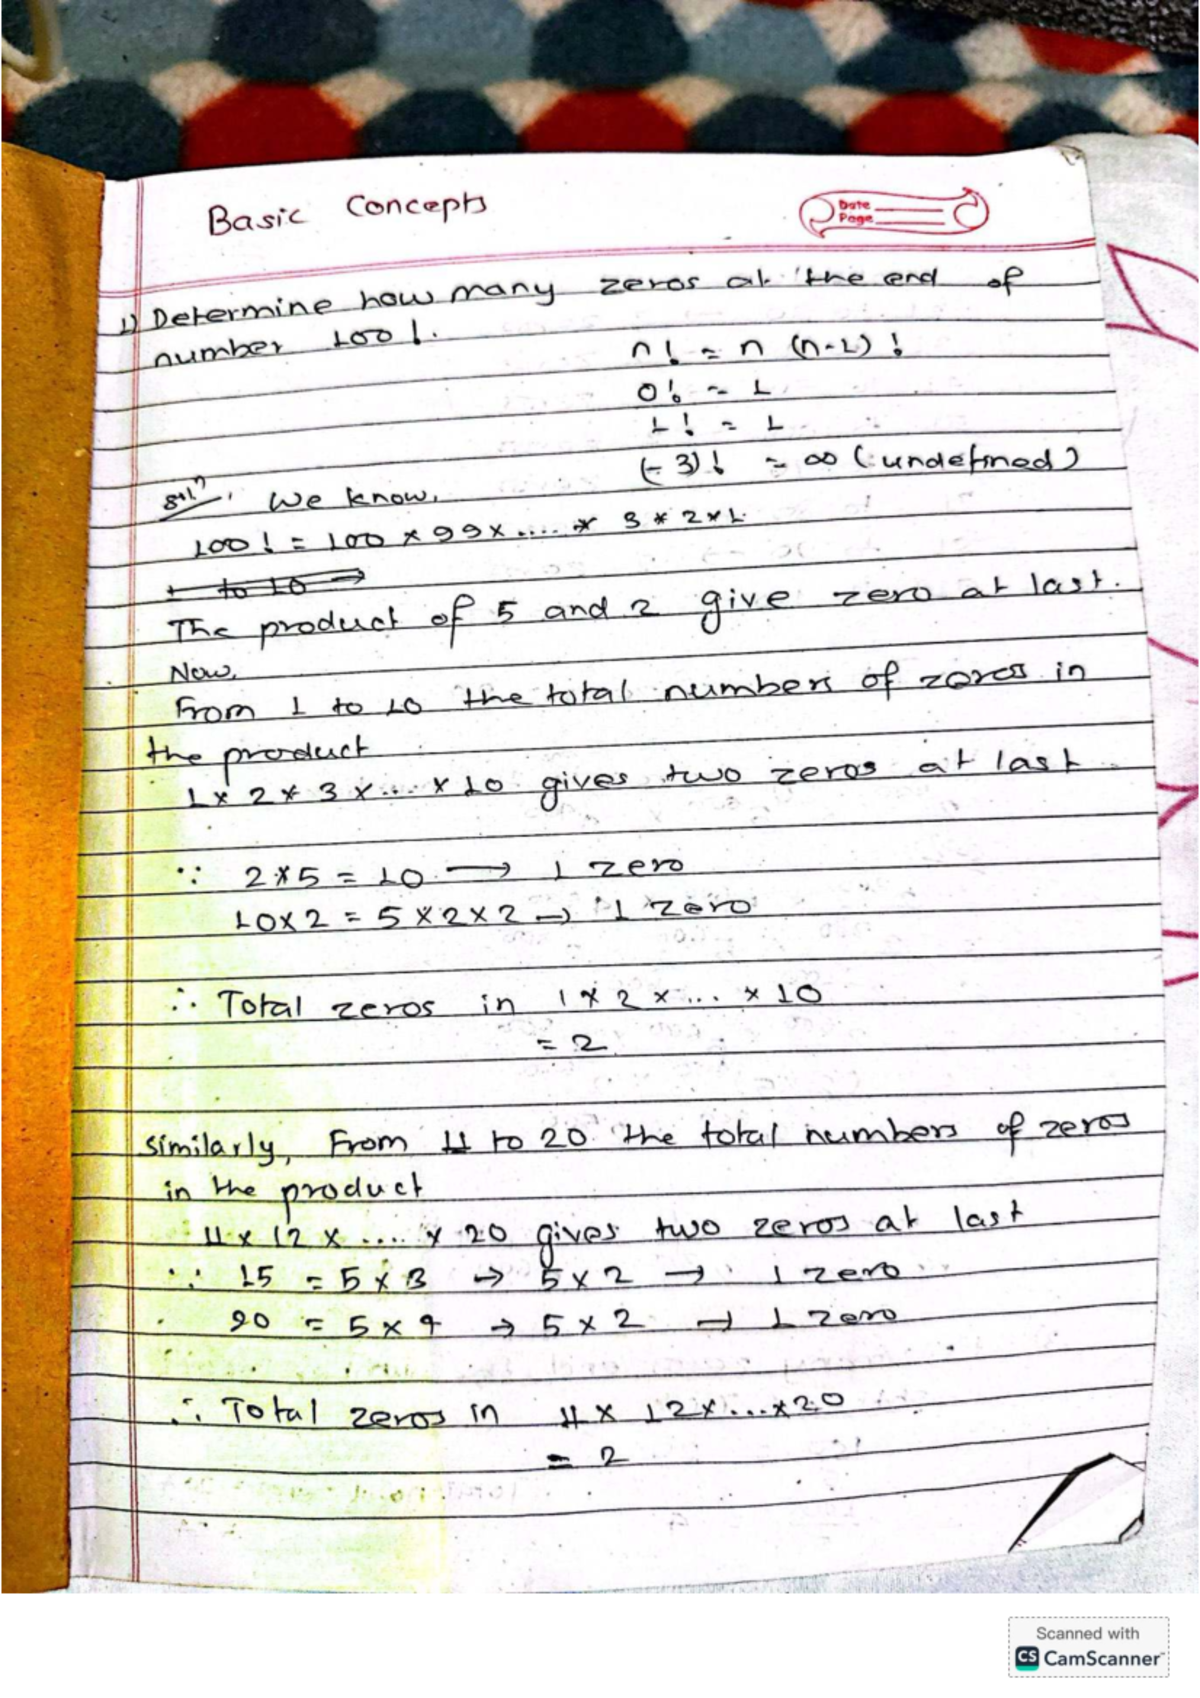 Basic Concepts
Date
Page
1) Determine how many zeros at the end of
number 100!.
n! = n (n-1)!
0! = 1
1! = 1
(-3)! = ∞ (undefined)
Sol^n. We know,
100! = 100 × 99 × ..... * 3 * 2 × 1.
to 10 →
The product of 5 and 2 give zero at last.
Now,
From 1 to 10 the total numbers of zeros in
the product
1 × 2 * 3 × ... × 10 gives two zeros at last
∵ 2*5 = 10 → 1 zero
10×2 = 5×2×2 → 1 zero
∴ Total zeros in 1 × 2 × ... × 10
= 2
Similarly, From 11 to 20 the total numbers of zeros
in the product
11 × 12 × .... × 20 gives two zeros at last
∵ 15 = 5 × 3 → 5 × 2 → 1 zero
20 = 5 × 4 → 5 × 2 → 1 zero
∴ Total zeros in 11 × 12 × ... × 20
= 2
Scanned with
CS CamScanner